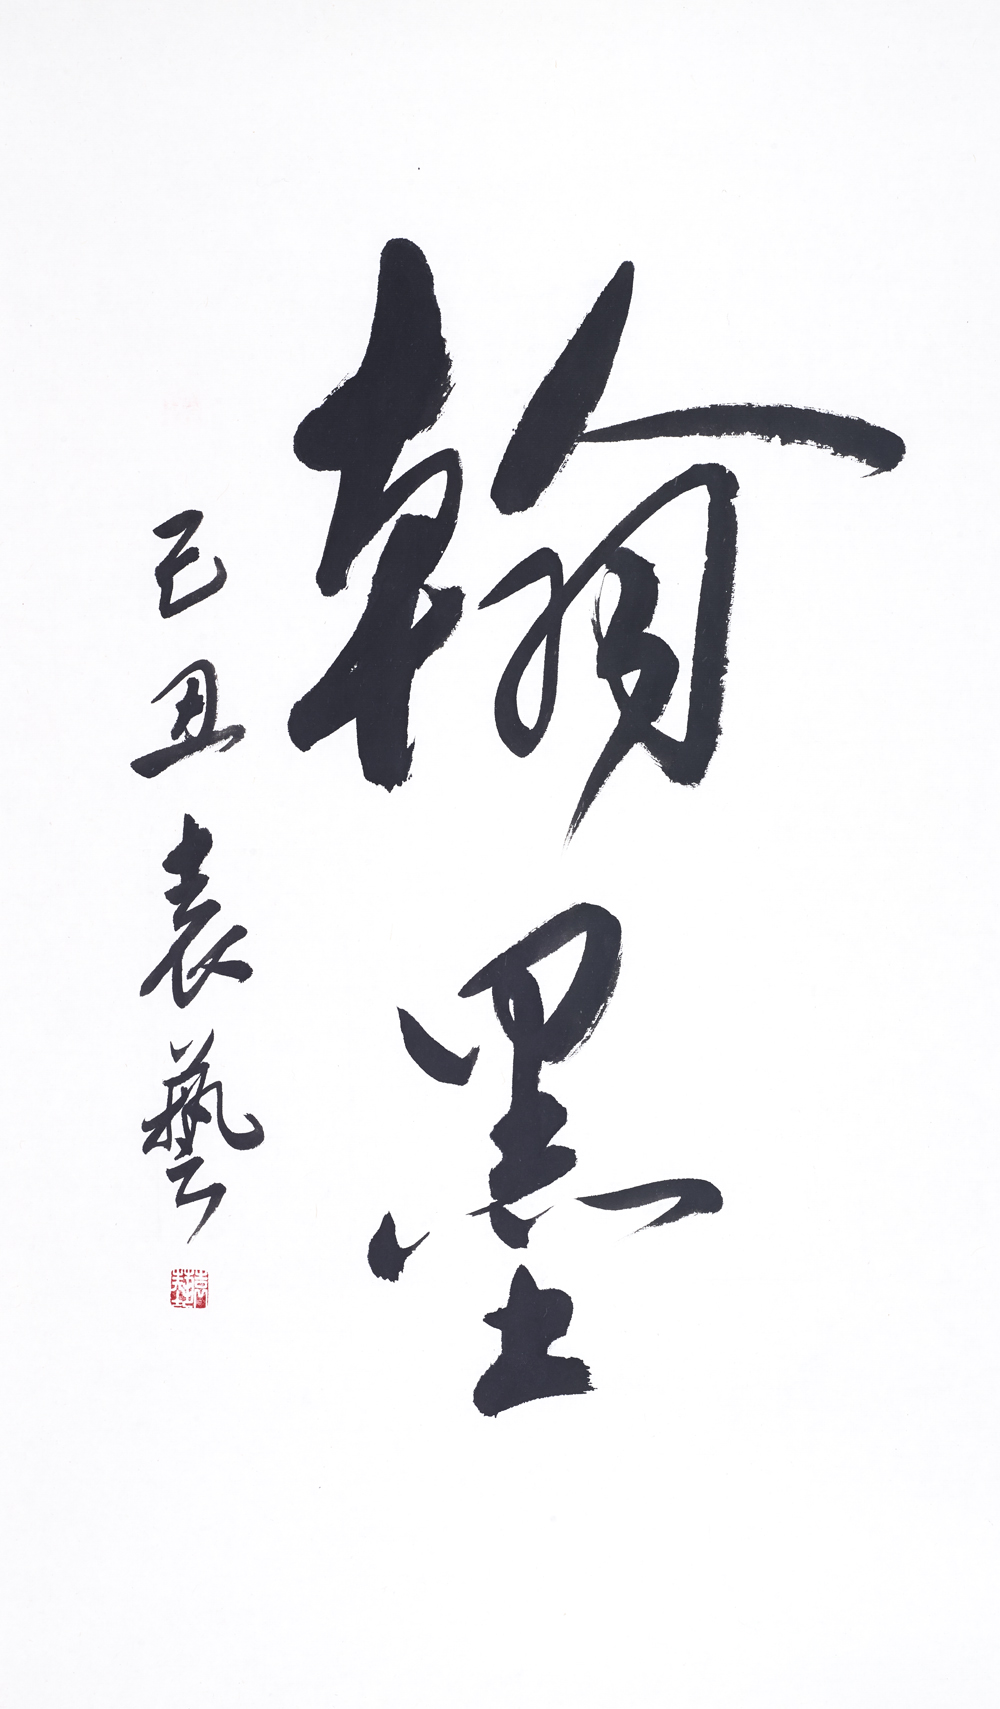 翰墨
己丑袁藝